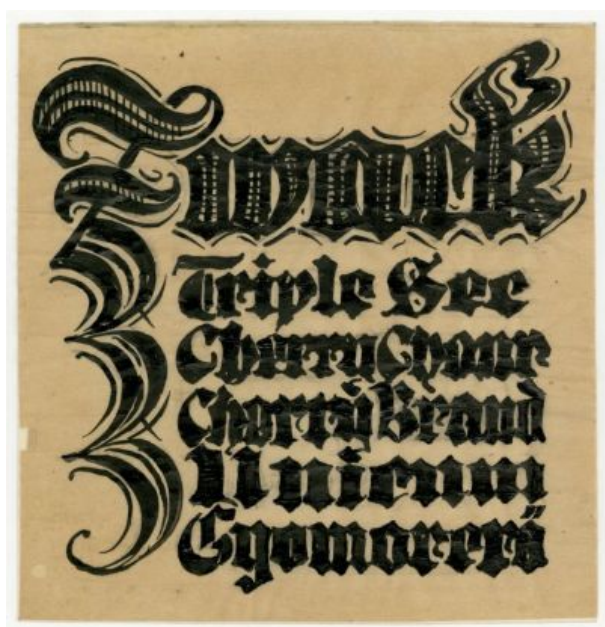 Zwack
Triple Sec
Cherry
Cherry Brand
Unicum
Gyomorerő